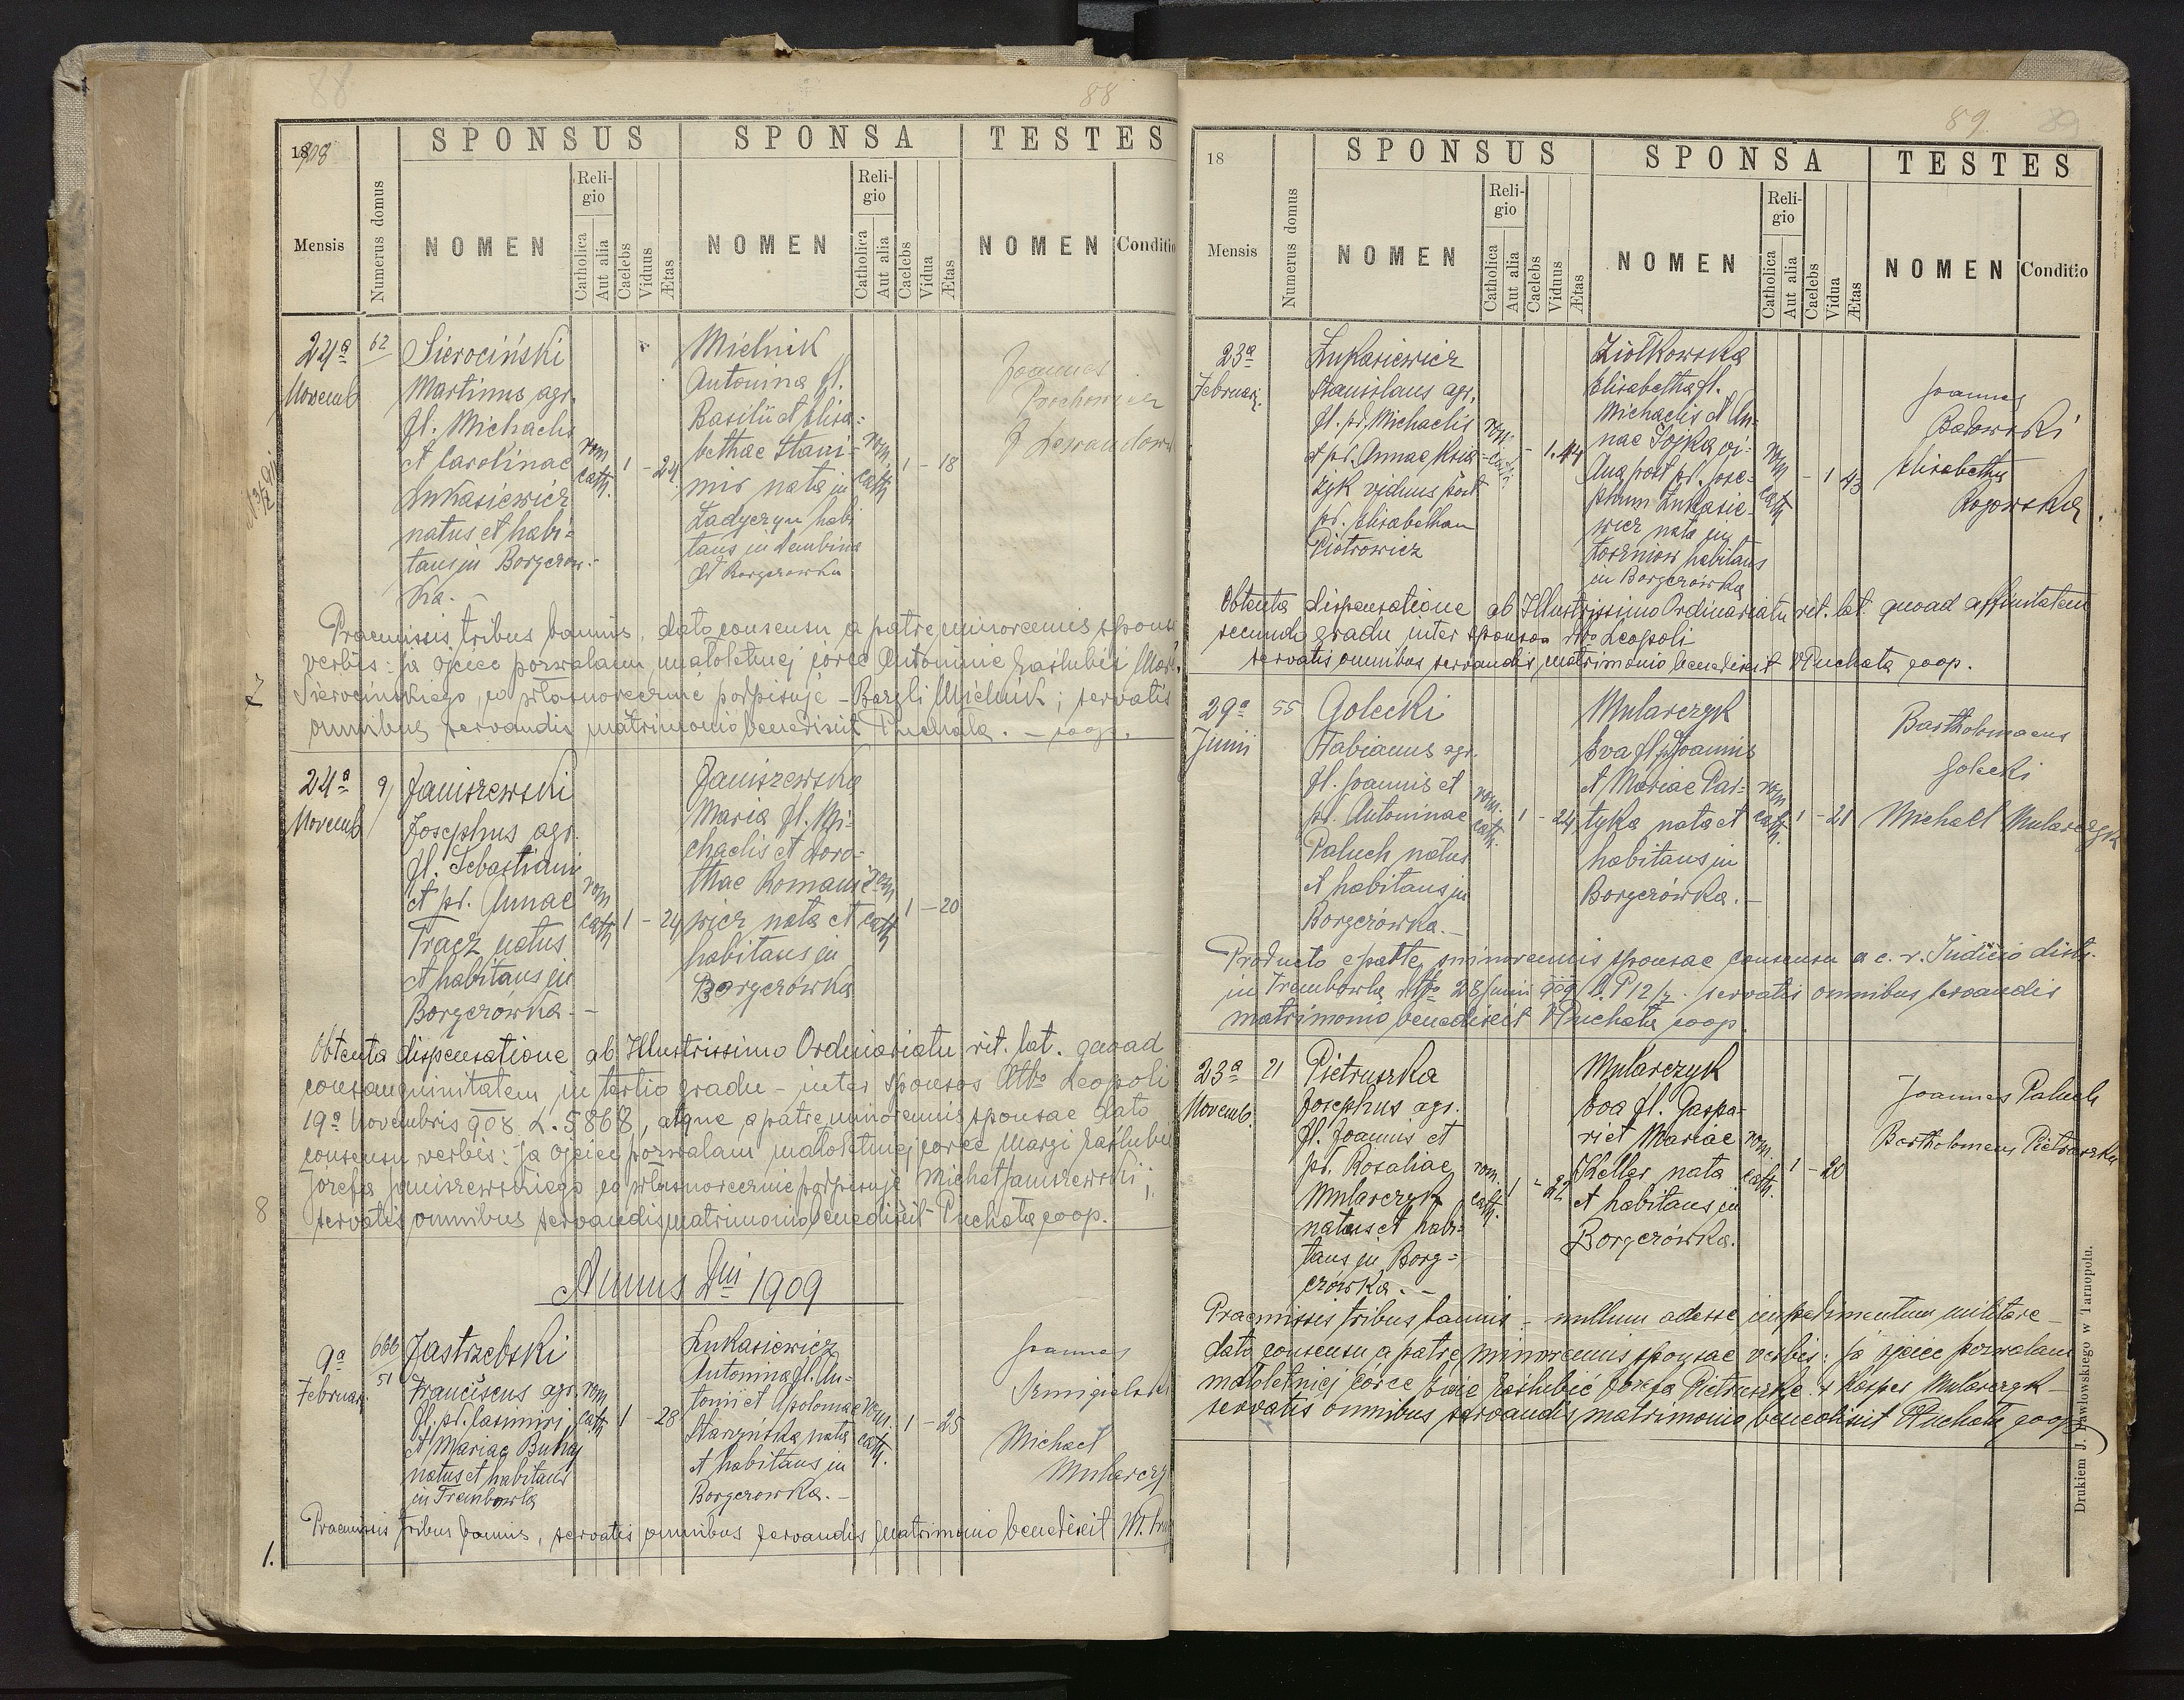 88
88
1908
SPONSUS
SPONSA
TESTES
Mensis
Numerus domus
NOMEN
Religio
Catholica
Aut alia
Caelebs
Viduus
Ætas
NOMEN
Religio
Catholica
Aut alia
Caelebs
Vidua
Ætas
NOMEN
Conditio
24ª
Novemb
62
Sierociński
Martinus agr.
fl. Michaelis
et Carolinae
Łukasiewicz
natus et habi-
tans in Borgerów-
ka. –
rom
cath.
1 – 24
Mielnik
Antonina fl.
Basilii et Elisa-
bethae Stani-
mir nata in
Ładyczyn habi
tans in Dembina
et Borgerowka
rom.
cath
1 – 18
Joannes
Prochowicz
J Lewandows
Praemissis tribus bannis, dato consensu a patre minorennis spons
verbis: ja ojciec pozwalam małoletniej córce Antoninie zaślubić Mar.
Sierocińskiego, co własnoręcznie podpisuję – Bazyli Mielnik; servatis
omnibus servandis matrimonio benedixit Puchała. – coop.
24ª
Novemb
9
Janiszewski
Josephus agr.
fl. Sebastiani
et pd. Annae
Tracz natus
et habitans in
Borgerówka. –
rom
cath
1 – 24
Janiszewska
Maria fl. Mi-
chaelis et Doro-
thae Romanie-
wicz nata et
habitans in
Borgerówka
rom
cath
1 – 20
Obtenta dispensatione ab Illustrissimo Ordinariatu rit. lat. quoad
consanguinitatem in tertio gradu – inter sponsos dtto Leopoli
19ª Novembris 908 L. 5868, atque a patre minorennis sponsae dato
consensu verbis: Ja ojciec pozwalam małoletniej córce Maryi zaślubić
Józefa Janiszewskiego co własnoręcznie podpisuję Michał Janiszewski;
8
servatis omnibus servandis matrimonio benedixit Puchała coop.
Annus Dni 1909
9ª
Februar.
666
51
Jastrzebski
Franciscus agr.
fl. pd. Casimiri
et Mariae Buhaj
natus et habitans
in Trembowla
rom
cath
1 – 28
Łukasiewicz
Antonina fl. An-
tonii et Apoloniae
Starzyńska nata
et habitans in
Borgerowka. –
rom.
cath.
1 – 25
Joannes
Szmigielski
Michael
Mularczy
Praemissis tribus bannis, servatis omnibus servandis matrimonio benedixit
1.
89
89
18
SPONSUS
SPONSA
TESTES
Mensis
Numerus domus
NOMEN
Religio
Catholica
Aut alia
Caelebs
Viduus
Ætas
NOMEN
Religio
Catholica
Aut alia
Caelebs
Vidua
Ætas
NOMEN
Conditio
23ª
Februar.
Łukasiewicz
Stanislaus agr.
fl. pd. Michaelis
et pd. Annae Ksią-
żyk viduus post
pd. Elisabetham
Piotrowicz
rom.
cath.
– 1. 44
Ziołkowska
Elisabetha fl.
Michaelis et An-
nae Sojka vi-
dua post pd. Jose-
phum Łukasie-
wicz nata in
Łoszniow habitans
in Borgerówka
rom
cath
– 1 43
Joannes
Badowski
Elisabetha
Rogowska.
Obtenta dispensatione ab Illustrissimo Ordinariatu rit. lat. quoad affinitatem
secundi gradu inter sponsos dtto Leopoli
servatis omnibus servandis matrimonio benedixit Puchała coop.
29ª
Junii
55
Golecki
Fabianus agr.
fl. Joannis et
pd. Antoninae
Paluch natus
et habitans in
Borgerówka. –
rom.
cath.
1 – 24
Mularczyk
Eva fl. pd. Joannis
et Mariae Par-
tyka nata et
habitans in
Borgerówka. –
rom
cath.
1 – 21
Bartholomaeus
Golecki
Michael Mularczyk
Producto e parte minorennis sponsae consensu a c. r. Judicio distr.
in Trembowla dtto 28 Junii 909 servatis omnibus servandis
matrimonio benedixit Puchała coop.
23ª
Novemb.
21
Pietruszka
Josephus agr.
fl. Joannis et
pd. Rosaliae
Mularczyk
natus et habi-
tans in Borg-
erówka. –
rom.
cath.
1 – 22
Mularczyk
Eva fl. Gaspa-
ri et Mariae
Keller nata
et habitans in
Borgerówka.
rom.
cath.
1 – 20
Joannes Paluch
Bartholomeus Pietruszka
Praemissis tribus bannis – nullum adesse impedimentum militare –
dato consensu a patre minorennis sponsae verbis: ja ojciec pozwalam
małoletniej córce Ewie zaślubić Józefa Pietruszkę. + Kasper Mularczyk –
servatis omnibus servandis matrimonio benedixit Puchała coop.
Drukiem J. Pawłowskiego w Tarnopolu.